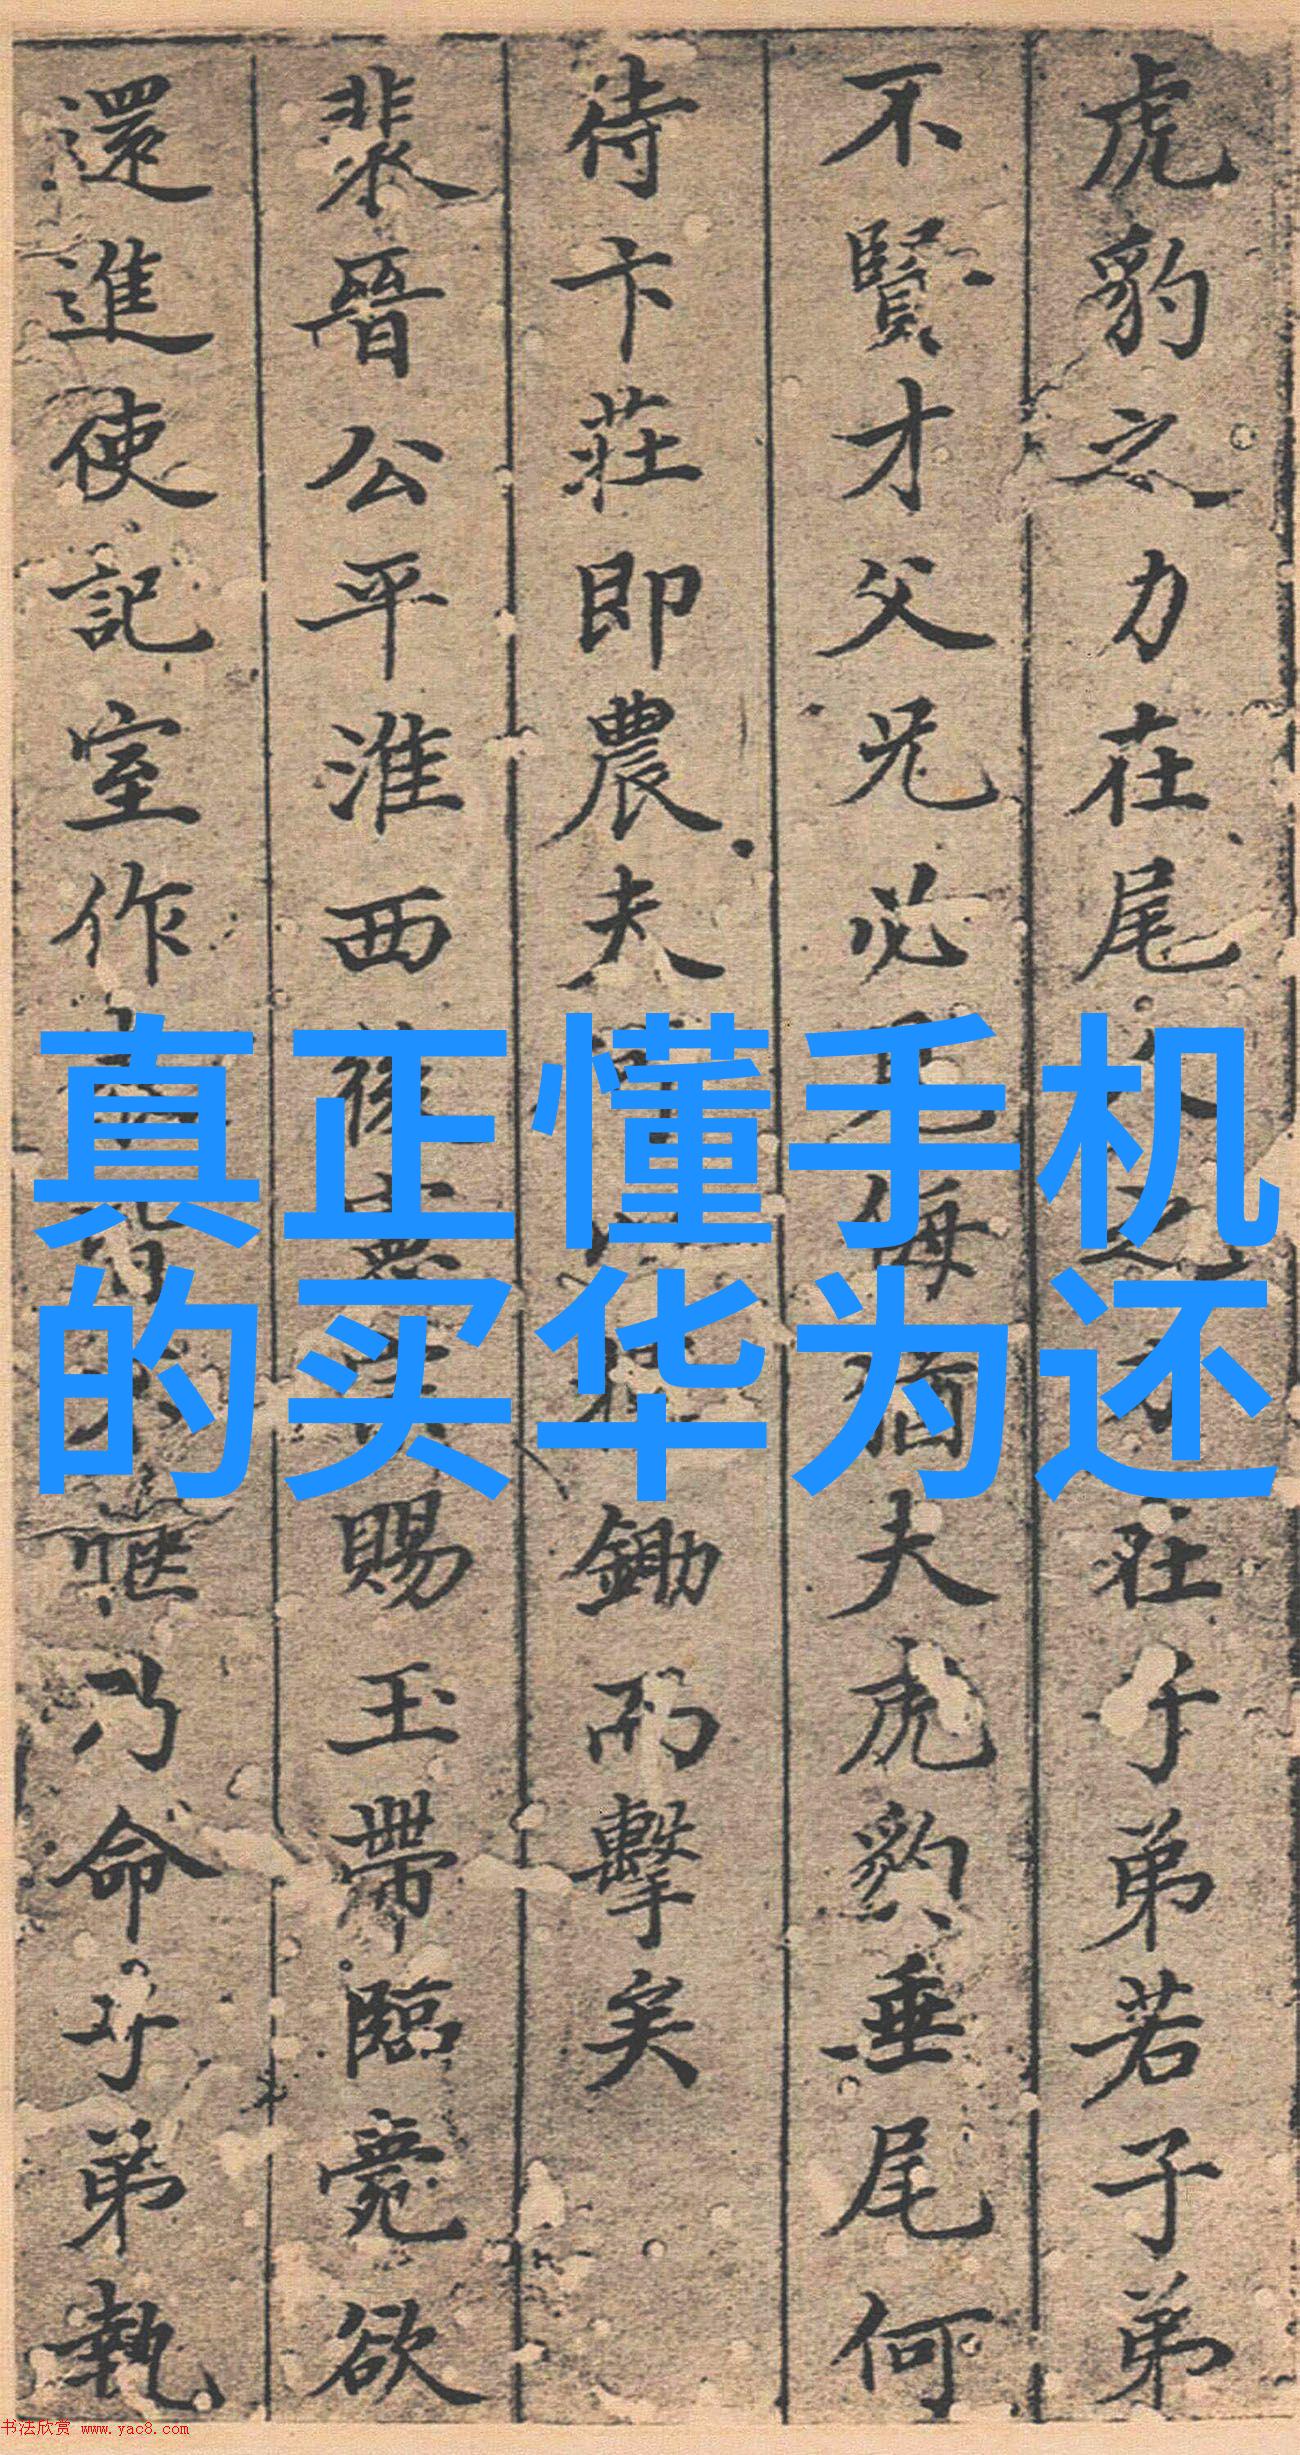 虎豹之力在尾
荘子弟若子弟
不賢才父兄必
侮猶夫虎豹垂尾何
待卞莊即農夫
鋤而擊矣
裴晉公平淮西
賜玉帶臨薨欲
還進使記室作
乃命子弟執
真正懂手机
的买华为还
书法欣赏 www.yac8.com